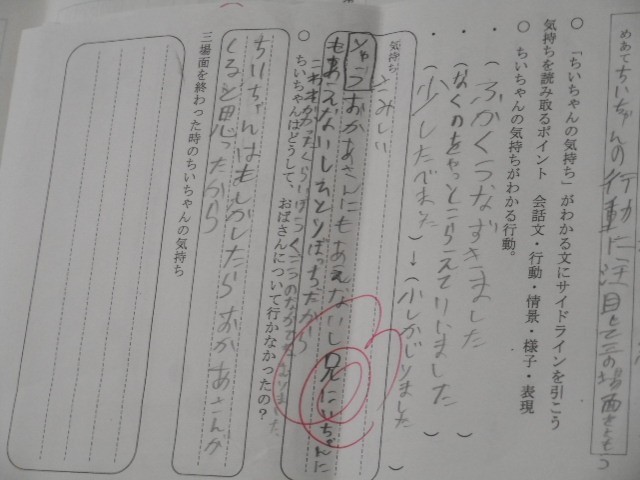 めあて ちいちゃんの行動に注目して三の場面をよもう
○ 「ちいちゃんの気持ち」がわかる文にサイドラインを引こう
気持ちを読み取るポイント 会話文・行動・情景・様子・表現
○ ちいちゃんの気持ちがわかる行動。
・(ふかくうなずきました)
・(なくのをやっとこらえていいました)
・(少したべました)→(少しかじりました)
気持ち
さみしい
おかあさんにもあえないし兄にいちゃんに
もあえないしひとりぼっちだから
○ ちいちゃんはどうして、おばさんについて行かなかったの?
ちいちゃんはもしかしたらおかあさんが
くると思ったから
三場面を終わった時のちいちゃんの気持ち